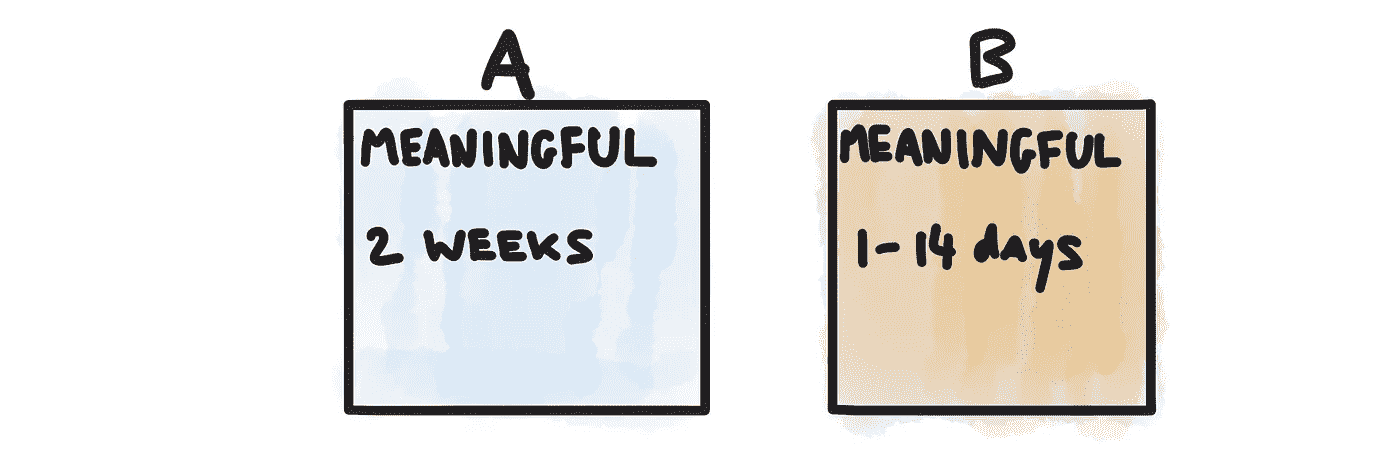 A
MEANINGFUL
2 WEEKS
B
MEANINGFUL
1-14 days